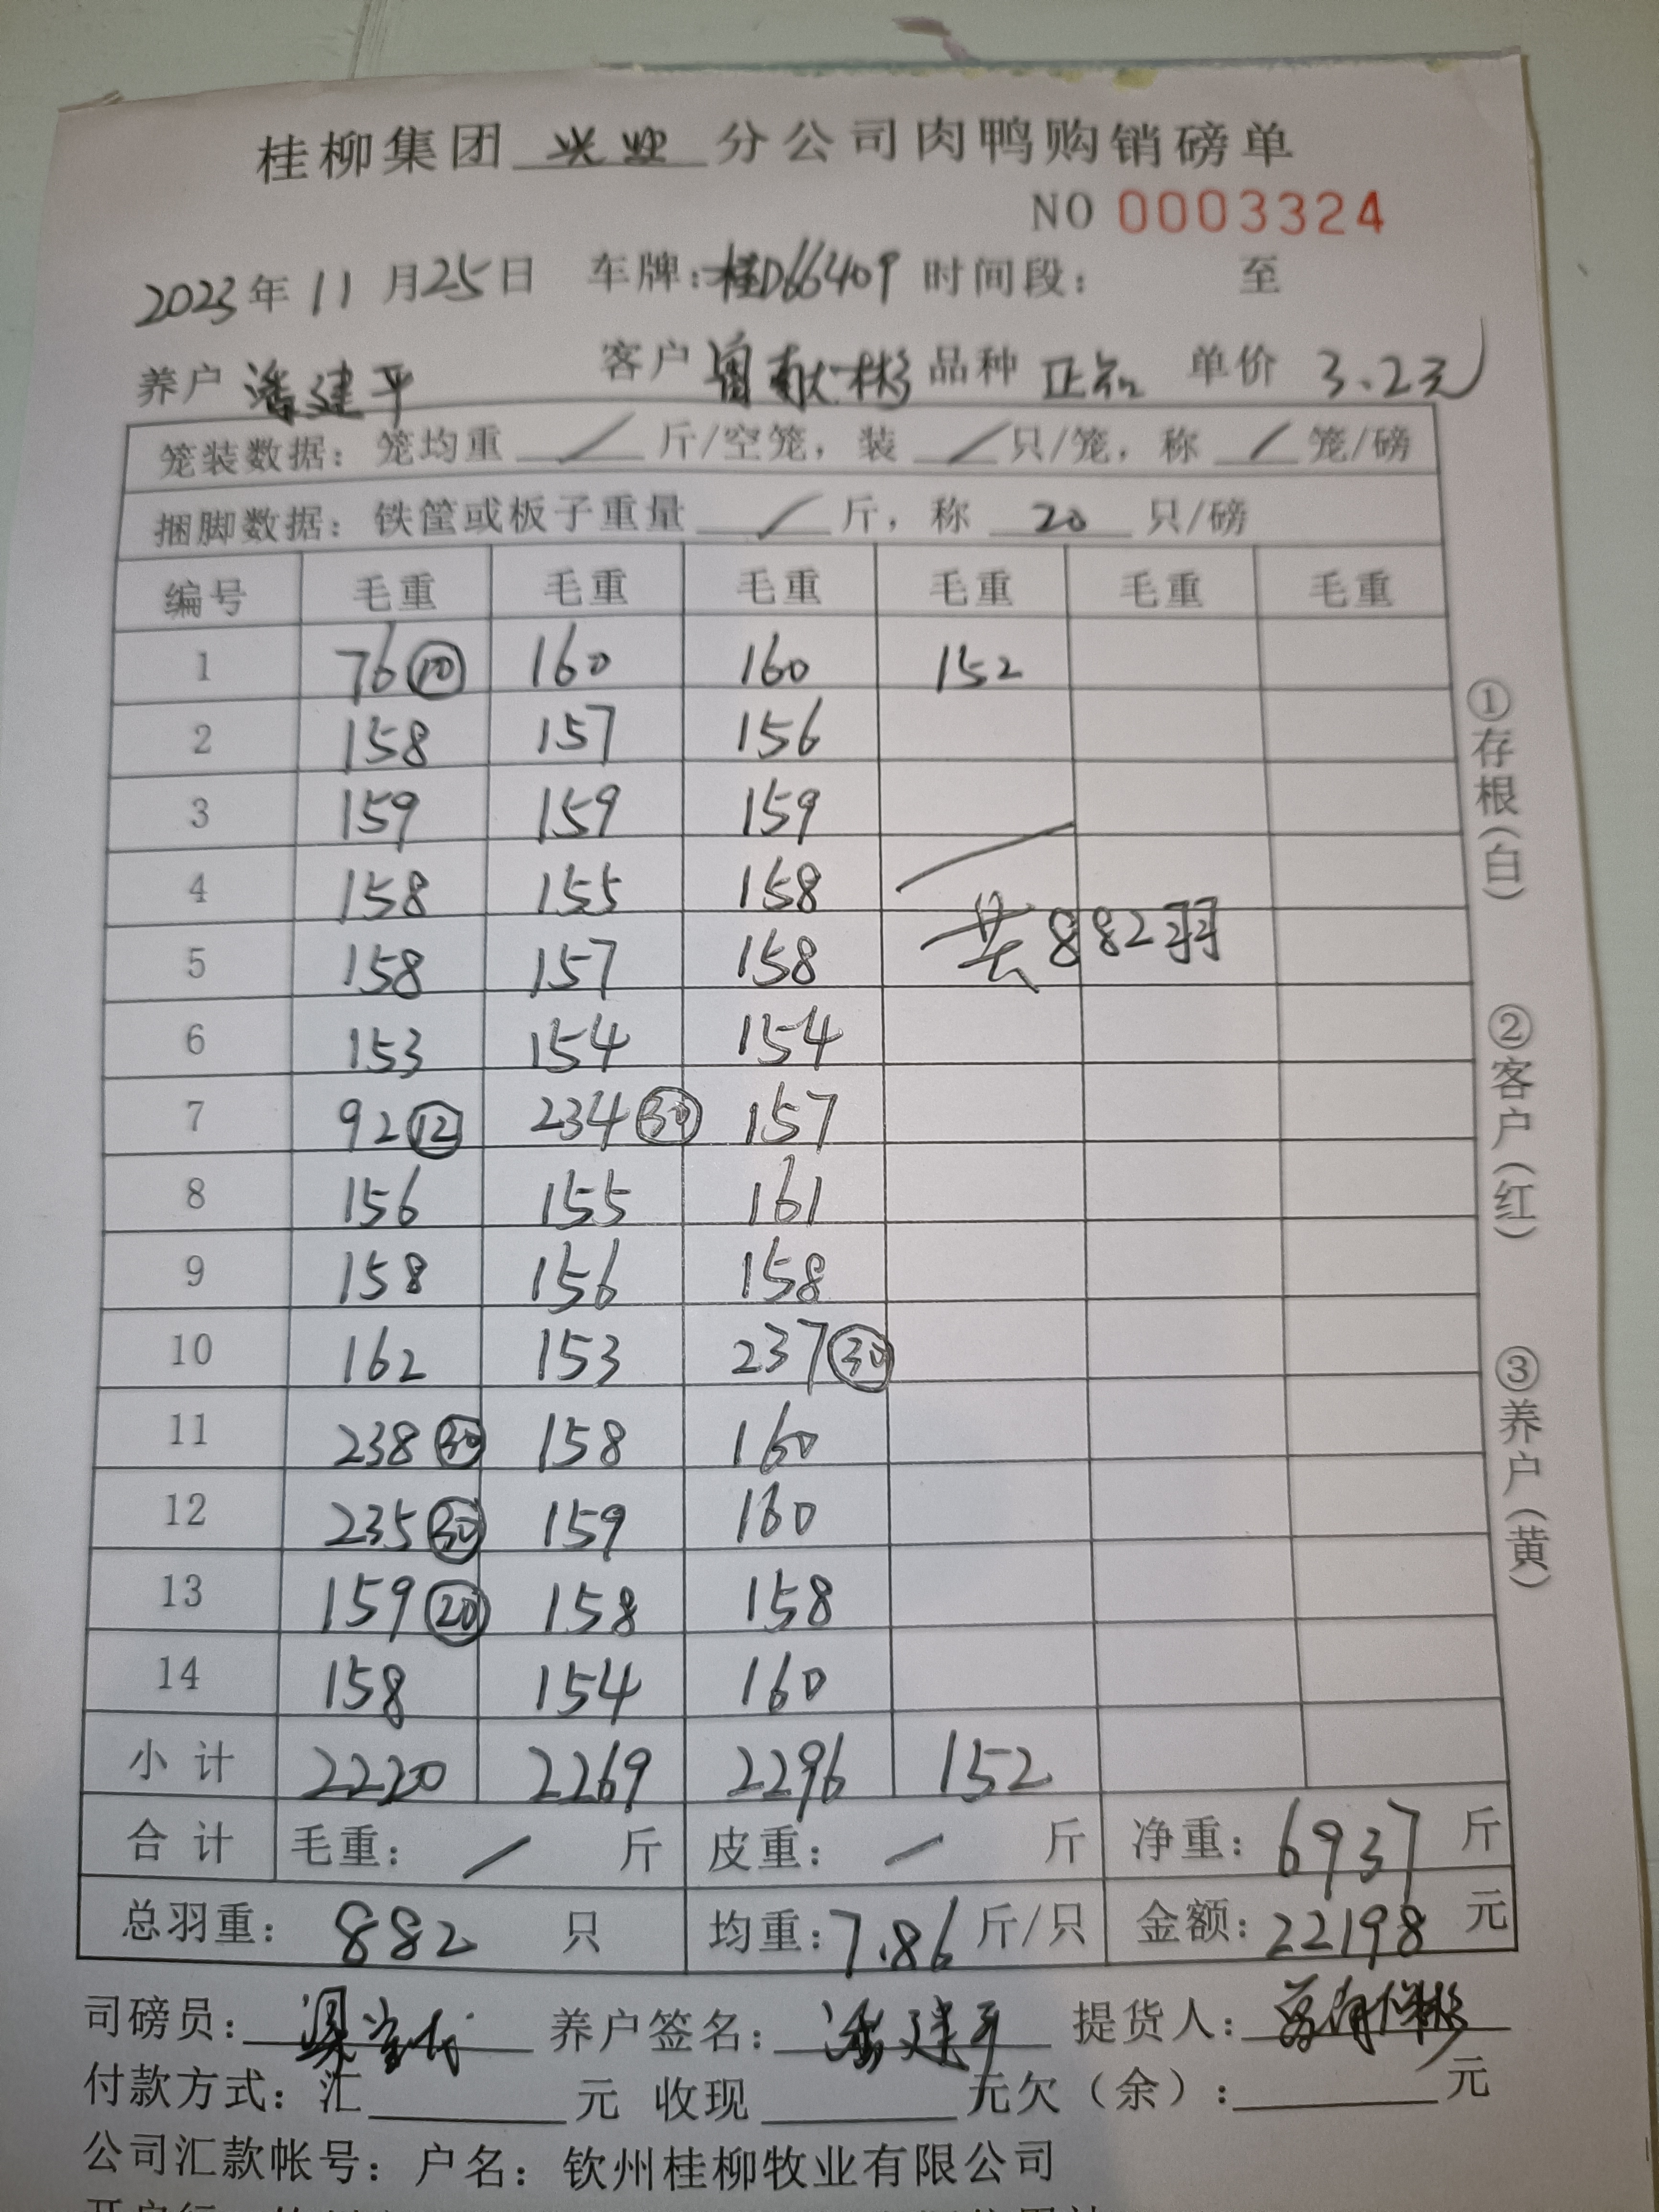 桂柳集团 兴业 分公司肉鸭购销磅单
NO 0003324
2023年11月25日 车牌:桂D66409 时间段: 至
养户 潘建平 客户 曾献彬 品种 正知 单价 3.2元
笼装数据: 笼均重 / 斤/空笼, 装 / 只/笼, 称 / 笼/磅
捆脚数据: 铁筐或板子重量 / 斤, 称 20 只/磅
编号 毛重 毛重 毛重 毛重 毛重 毛重
1 76⑩ 160 160 152
2 158 157 156
3 159 159 159
4 158 155 158
共882羽
5 158 157 158
6 153 154 154
7 92⑫ 234㉚ 157
8 156 155 161
9 158 156 158
10 162 153 237㉚
11 238㉚ 158 160
12 235㉚ 159 160
13 159⑳ 158 158
14 158 154 160
小计 2220 2269 2296 152
合计 毛重: / 斤 皮重: / 斤 净重: 6937 斤
总羽重: 882 只 均重: 7.86 斤/只 金额: 22198 元
司磅员: 养户签名: 潘建平 提货人:
付款方式: 汇 元 收现 元欠(余): 元
公司汇款帐号: 户名: 钦州桂柳牧业有限公司
①存根(白)
②客户(红)
③养户(黄)